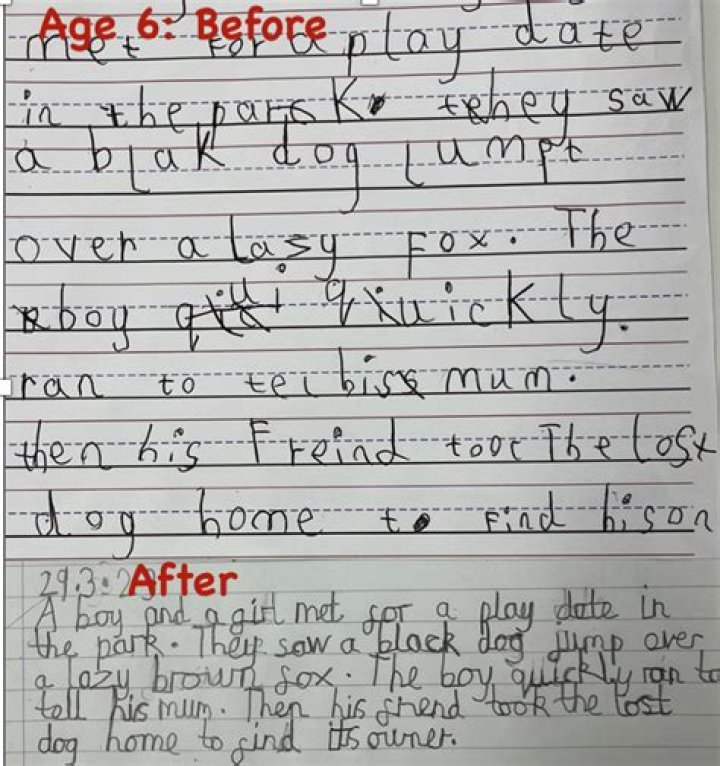 Age 6: Before
met for a play date
in the park they saw
a blak dog jumpt
over a lasy fox. The
boy quickly.
ran to tel his mum.
then his Freind took The lost
dog home to Find hison
29.3.2 After
A boy and a girl met for a play date in
the park. They saw a black dog jump over
a lazy brown fox. The boy quickly ran to
tell his mum. Then his friend took the lost
dog home to find its owner.